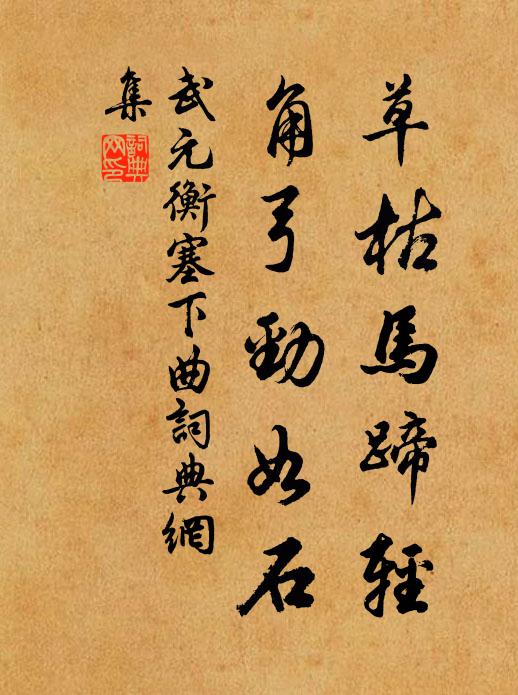 草枯馬蹄輕
角弓勁如石
武元衡塞下曲詞典網
集
詞典
网印